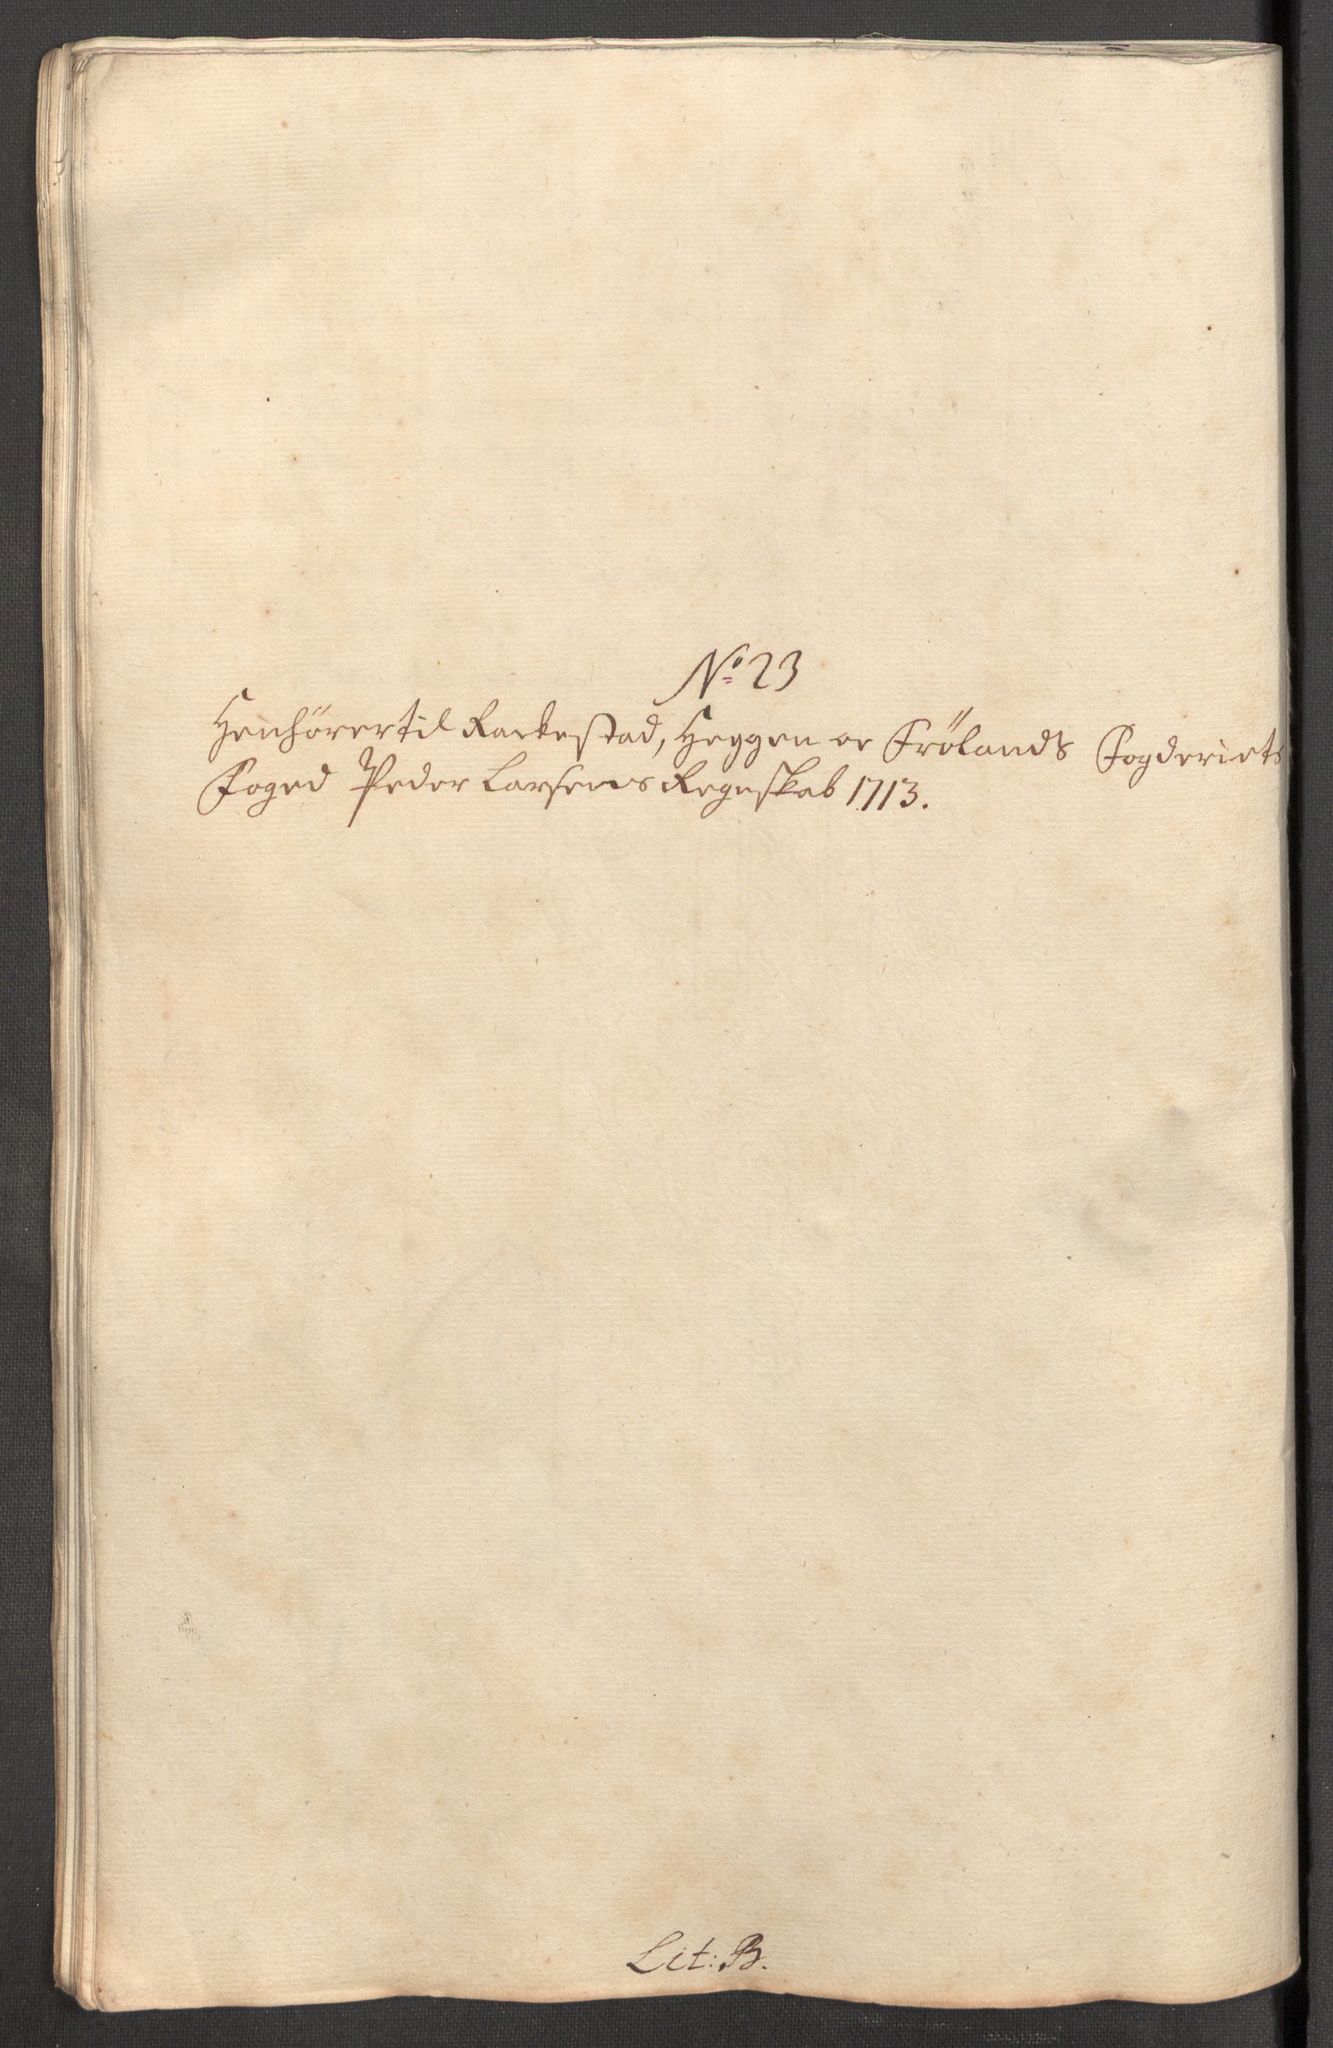 No: 23
Henhörer til Rackestad, Heggen oc Frölands Fogderiets
Foged Peder Larsens Regnskab 1713.
Lit: B.